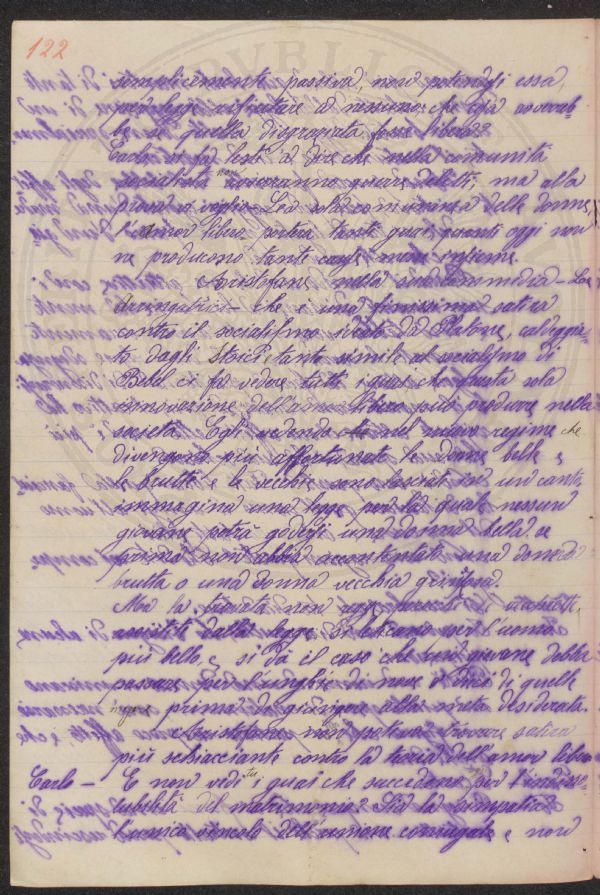 122
semplicemente passiva, non potendosi essa,
per legge rifiutare a nessuno: che cosa avverreb-
be se quella disgraziata fosse libera?
Carlo si fa lesti a dire che nella comunità
socialista non avverranno questi delitti, ma alla
prova vi voglio. La sola comunanza delle donne,
l'amor libero, porterà tanti guai quanti oggi non
ne producono tante cause messe insieme.
Aristofane nella sua commedia - Le
Arringatrici - che è una finissima satira
contro il socialismo ideato da Platone, caldeggia-
to dagli Stoici e tanto simile al socialismo di
Bebel ci fa vedere tutti i guai che questa sola
innovazione dell'amor libero può produrre nella
società. Egli vedendo che nel nuovo regime
divengono più affortunate le donne belle e
le brutte e le vecchie sono lasciate in un canto,
immagina una legge per la quale nessun
giovane potrà godersi una donna bella se
prima non abbia accontentato una donna
brutta o una donna vecchia
Ma la trovata non
assistite dalla legge, si per l'uomo
più bello, e si dà il caso che un giovane debba
passare per di due o tre di quelle
prima di giungere alla meta desiderata.
Aristofane non poteva trovare satira
più schiacciante contro la teoria dell'amor libero
Carlo - E non vedi tu i guai che succedono per l'indisso-
lubilità del matrimonio? Sia la simpatia
l'unico vincolo dell'unione coniugale e non